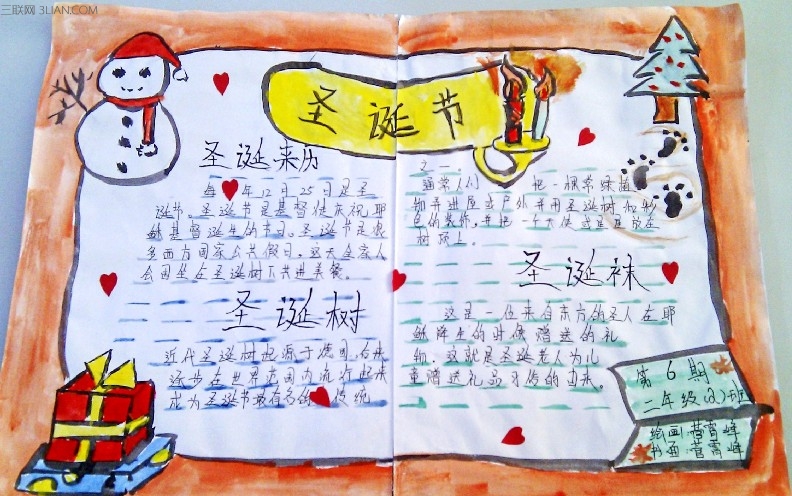 三联网 3LIAN.COM
圣诞节
圣诞来历
每年12月25日是圣
诞节。圣诞节是基督徒庆祝耶
稣基督诞生的节日。圣诞节是很
多西方国家公共假日。这天全家人
会团坐在圣诞树下共进美餐。
圣诞树
近代圣诞树起源于德国,后来
逐步在世界范围内流行起来
成为圣诞节最有名的传统
之一
通常人们 把一棵常绿植
物弄进屋或户外并用圣诞树似彩
色的装饰,并把一个天使或星星放在
树顶上。
圣诞袜
这是一位来自东方的圣人在耶
稣降生的时候赠送的礼
物,这就是圣诞老人为儿
童赠送礼品习俗的由来。
第6期
二年级(2)班
绘画:营霄峰
书画:营霄峰